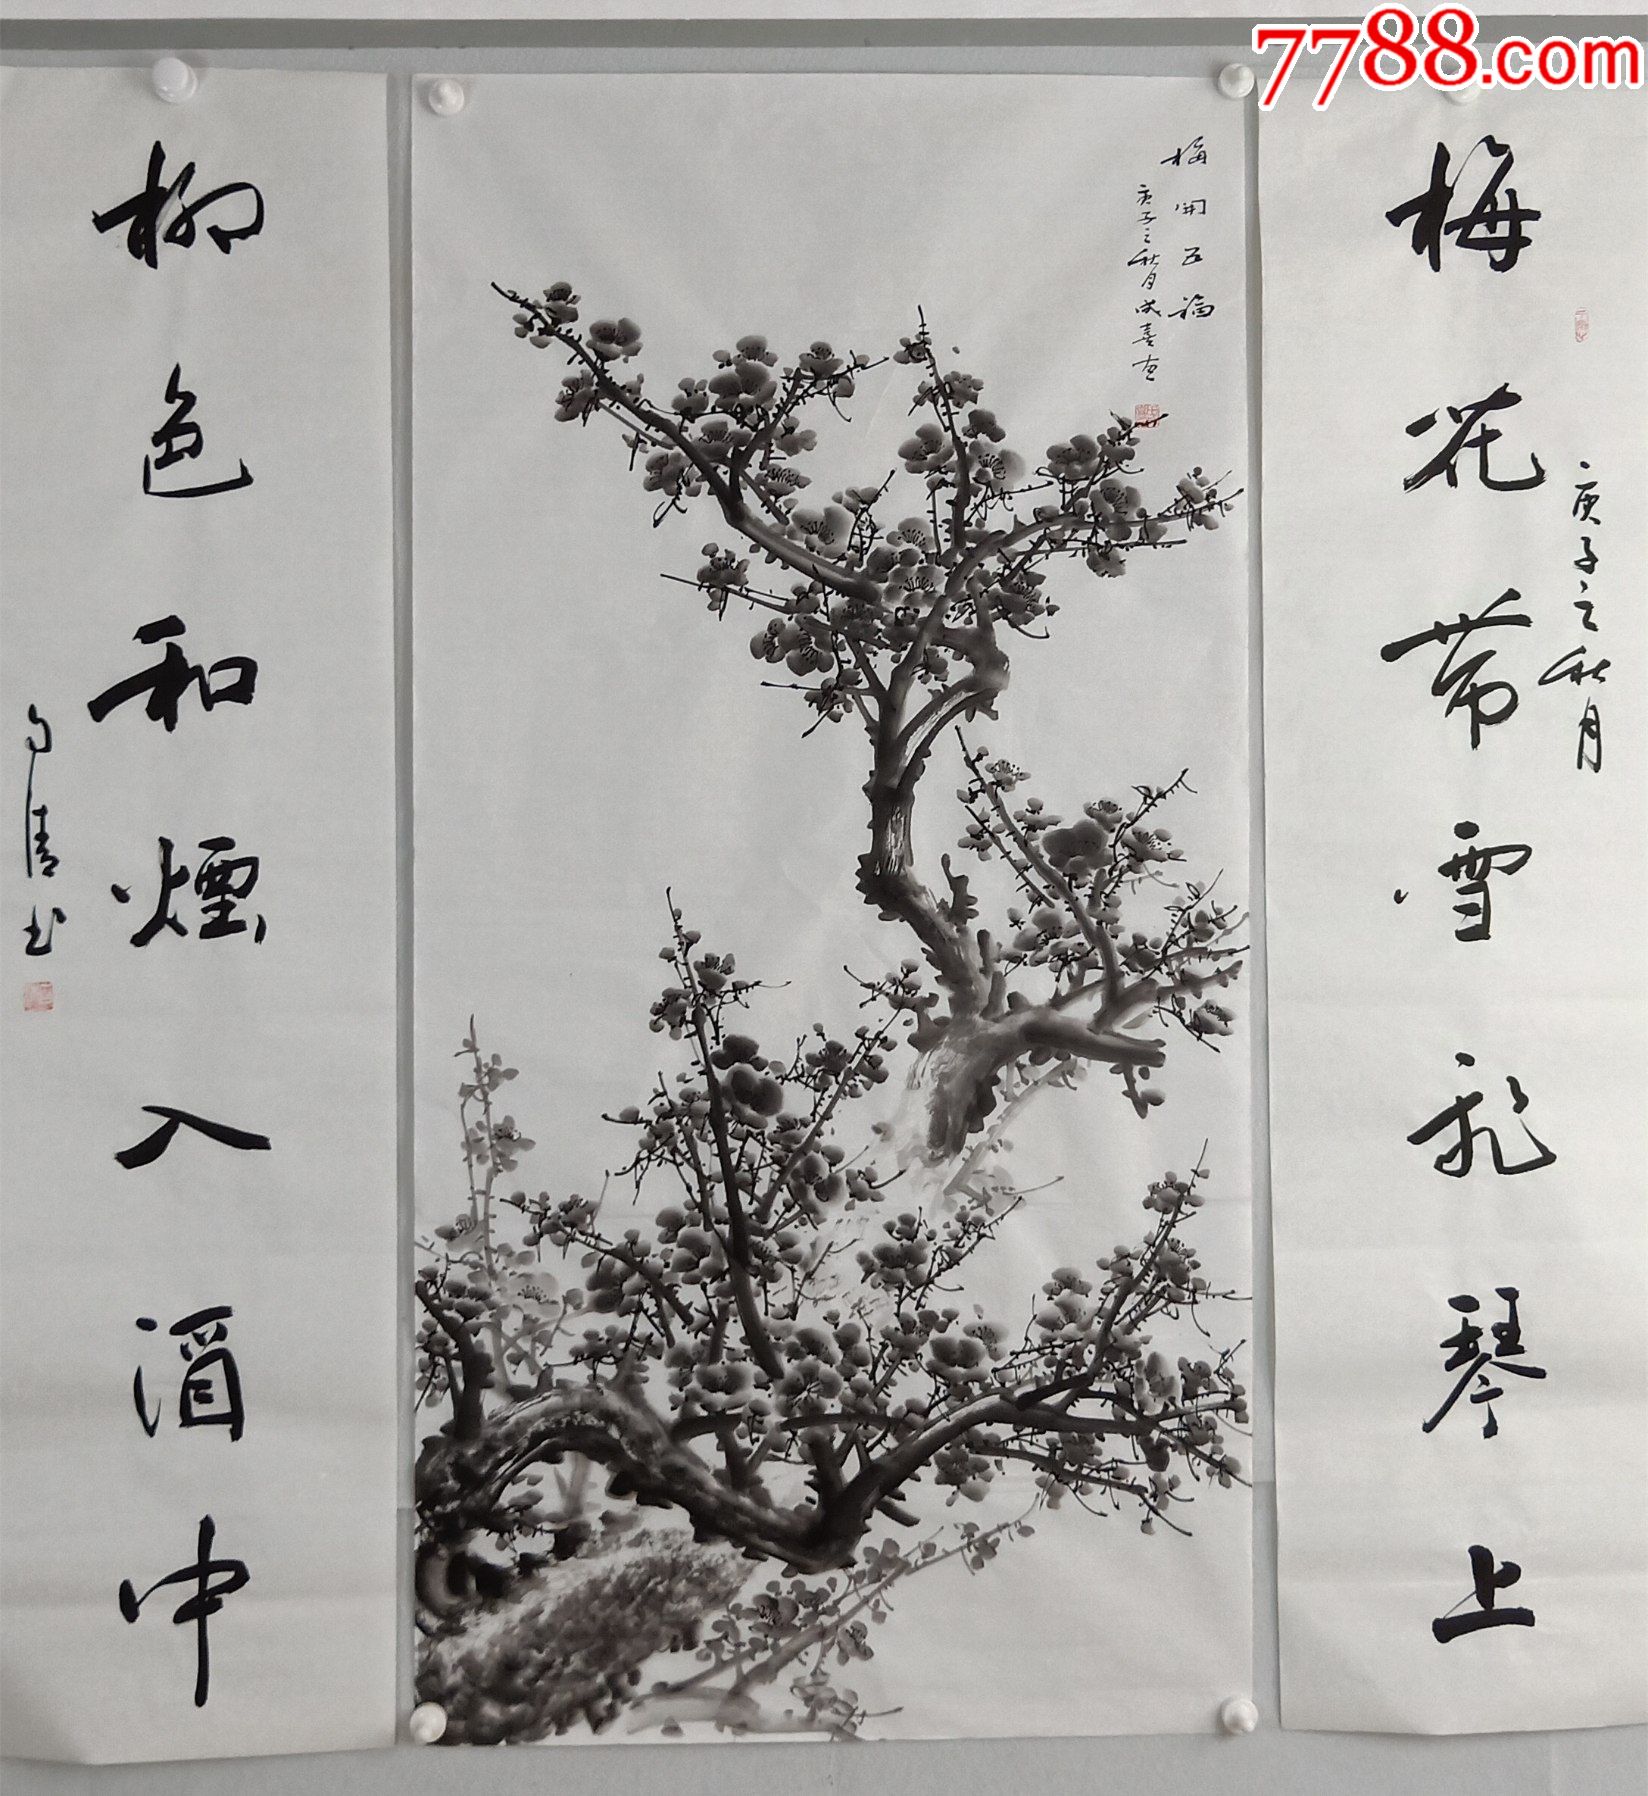 7788.com
梅花带雪飛琴上
庚子之秋月
梅開五福
庚子之秋月成喜画
柳色和煙入酒中
清书